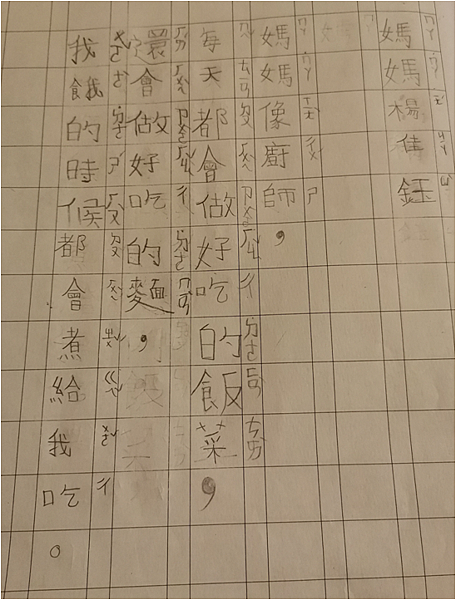 媽媽 楊佳鈺
媽媽像廚師，
每天都會做好吃的飯菜，
還會做好吃的麵，
我餓的時候都會煮給我吃。